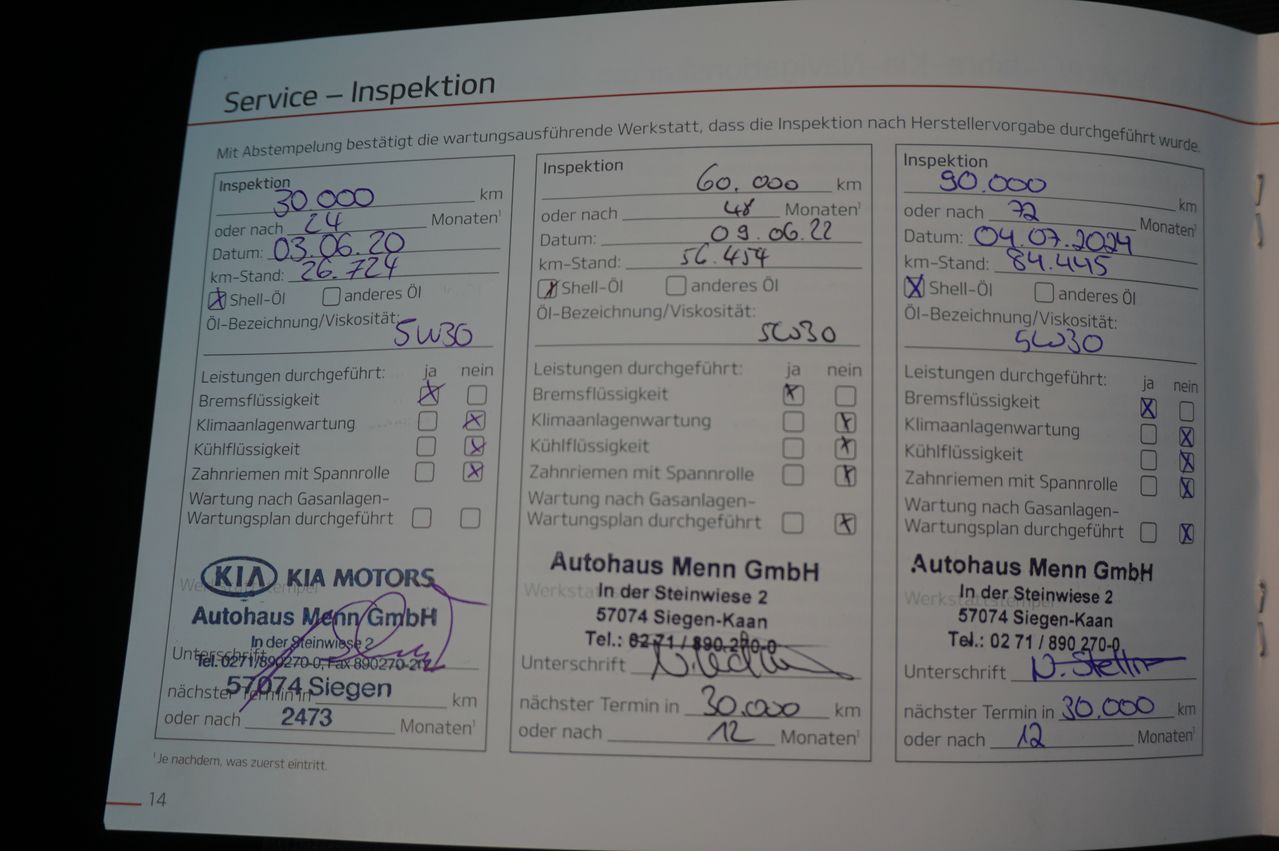 Service – Inspektion
Mit Abstempelung bestätigt die wartungsausführende Werkstatt, dass die Inspektion nach Herstellervorgabe durchgeführt wurde.
Inspektion
30 000 km
oder nach 24 Monaten¹
Datum: 03.06.20
km-Stand: 26.724
☒ Shell-Öl ☐ anderes Öl
Öl-Bezeichnung/Viskosität:
5W30
Leistungen durchgeführt: ja nein
Bremsflüssigkeit ☒ ☐
Klimaanlagenwartung ☐ ☒
Kühlflüssigkeit ☐ ☒
Zahnriemen mit Spannrolle ☐ ☒
Wartung nach Gasanlagen-
Wartungsplan durchgeführt ☐ ☐
KIA KIA MOTORS
Autohaus Menn GmbH
In der Steinwiese 2
Tel. 0271/890270-0, Fax 890270-20
57074 Siegen
nächster Termin in km
2473
oder nach Monaten¹
Inspektion
60.000 km
oder nach 48 Monaten¹
Datum: 09.06.22
km-Stand: 56.454
☒ Shell-Öl ☐ anderes Öl
Öl-Bezeichnung/Viskosität:
5W30
Leistungen durchgeführt: ja nein
Bremsflüssigkeit ☒ ☐
Klimaanlagenwartung ☐ ☒
Kühlflüssigkeit ☐ ☒
Zahnriemen mit Spannrolle ☐ ☒
Wartung nach Gasanlagen-
Wartungsplan durchgeführt ☐ ☒
Autohaus Menn GmbH
In der Steinwiese 2
57074 Siegen-Kaan
Tel.: 02 71 / 890 270-0
Unterschrift
nächster Termin in 30.000 km
oder nach 12 Monaten¹
Inspektion
90.000 km
oder nach 72 Monaten¹
Datum: 04.07.2024
km-Stand: 84.445
☒ Shell-Öl ☐ anderes Öl
Öl-Bezeichnung/Viskosität:
5W30
Leistungen durchgeführt: ja nein
Bremsflüssigkeit ☒ ☐
Klimaanlagenwartung ☐ ☒
Kühlflüssigkeit ☐ ☒
Zahnriemen mit Spannrolle ☐ ☒
Wartung nach Gasanlagen-
Wartungsplan durchgeführt ☐ ☒
Autohaus Menn GmbH
Werkstattstempel
In der Steinwiese 2
57074 Siegen-Kaan
Tel.: 02 71 / 890 270-0
Unterschrift
nächster Termin in 30.000 km
oder nach 12 Monaten¹
¹Je nachdem, was zuerst eintritt.
14